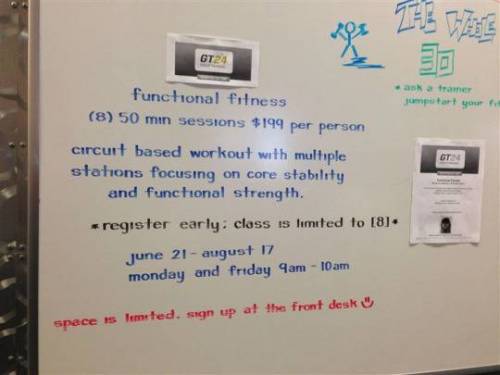 GT24
functional fitness
(8) 50 min sessions $199 per person
circuit based workout with multiple
stations focusing on core stability
and functional strength.
*register early; class is limited to [8]*
june 21 - august 17
monday and friday 9am - 10am
space is limited. sign up at the front desk
THE WHOLE
30
* ask a trainer
jumpstart your fit
GT24